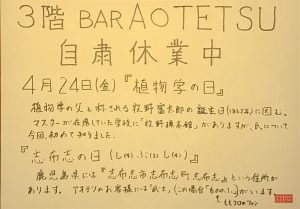 3階 BAR AOTETSU
自粛休業中
4月24日(金)『植物学の日』
植物学の父と称される牧野富太郎の誕生日(1862年)に因む。
マスターが在学していた学校に「牧野標本館」がありますが、氏について
今回、初めて知りました。
『志布志の日(し(4)ぶ(2)し(4))』
鹿児島県には『志布志市志布志町志布志』という住所が
あります。アオテツのお客様には「武士」(この場合「もののふ」)がいます。